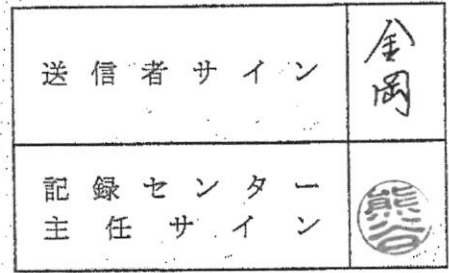 送信者サイン
金岡
記録センター
主任サイン
熊谷